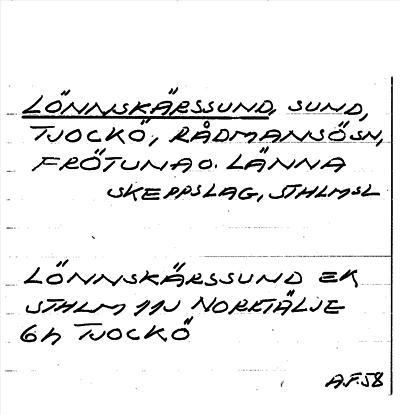 LÖNNSKÄRSSUND, SUND,
TJOCKÖ, RÅDMANSÖSN,
FRÖTUNA O. LÄNNA
SKEPPSLAG, STHLMSL
LÖNNSKÄRSSUND EK
STHLM 11J NORRTÄLJE
6h TJOCKÖ
A.F.58